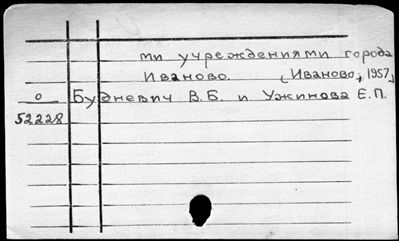 ми учреждениями города
Иваново. (Иваново, 1957)
о Будневич В.Б. и Ужинова Е.П.
52228